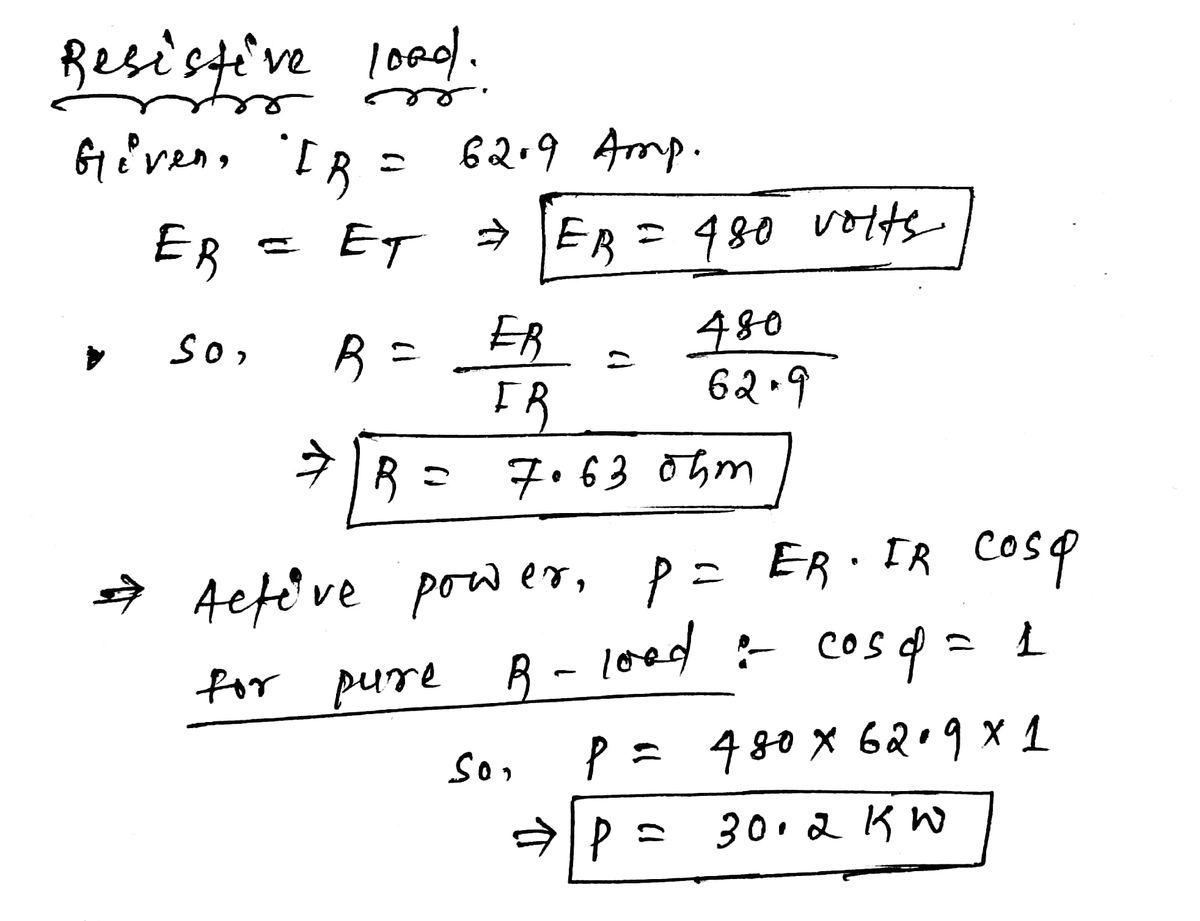 Resistive load.
Given, I_R = 62.9 Amp.
E_R = E_T ⇒ E_R = 480 volts
So, R = E_R / I_R = 480 / 62.9
⇒ R = 7.63 ohm
⇒ Active power, P = E_R . I_R cosφ
for pure R - load :- cosφ = 1
So, P = 480 × 62.9 × 1
⇒ P = 30.2 KW